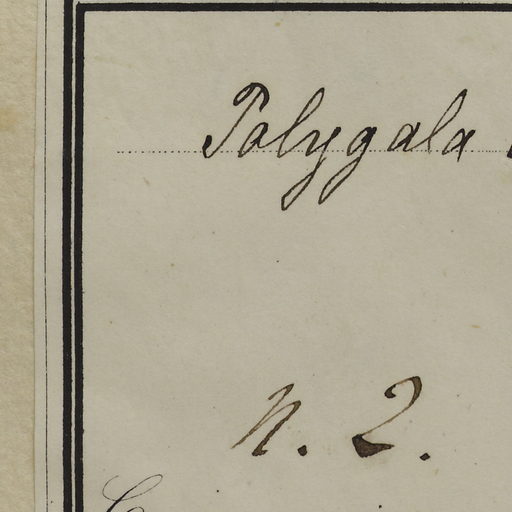 Polygala
n. 2.